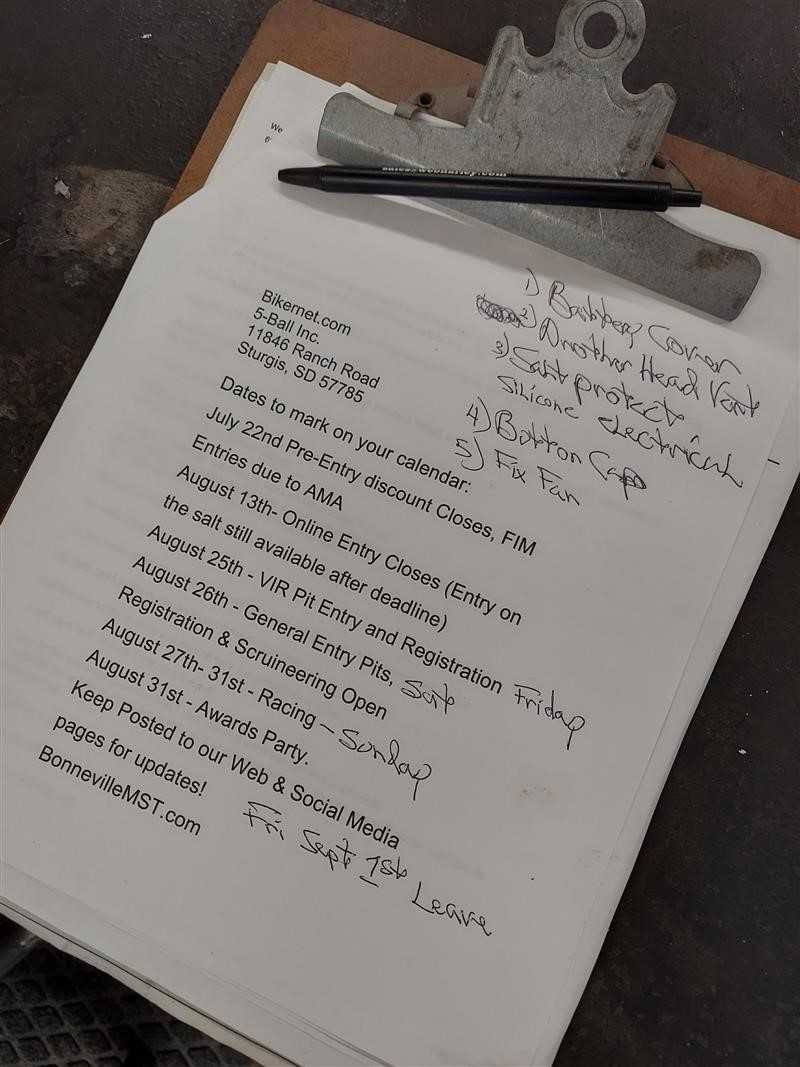 We
sales@webharley.com
1) Battery Cover
2) Another Head Vent
3) Salt protect
silicone electrical
4) Button Cap
5) Fix Fan
Bikernet.com
5-Ball Inc.
11846 Ranch Road
Sturgis, SD 57785
Dates to mark on your calendar:
July 22nd Pre-Entry discount Closes, FIM
Entries due to AMA
August 13th- Online Entry Closes (Entry on
the salt still available after deadline)
August 25th - VIR Pit Entry and Registration Friday
August 26th - General Entry Pits, Sat
Registration & Scruineering Open
August 27th- 31st - Racing - Sunday
August 31st - Awards Party.
Keep Posted to our Web & Social Media
pages for updates!
BonnevilleMST.com
Fri Sept 1st Leave